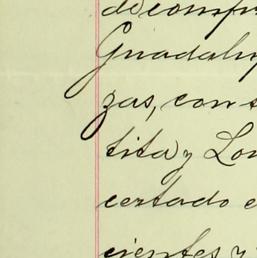 de conf
Guadalu
zas, con
tita y Lo
certado e
cientes y